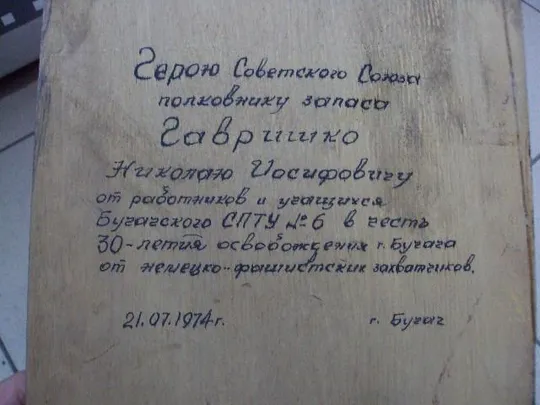 Герою Советского Союза
полковнику запаса
Гавришко
Николаю Иосифовичу
от работников и учащихся
Бучачского СПТУ №6 в честь
30-летия освобождения г. Бучача
от немецко-фашистских захватчиков.
21.07.1974г. г. Бучач